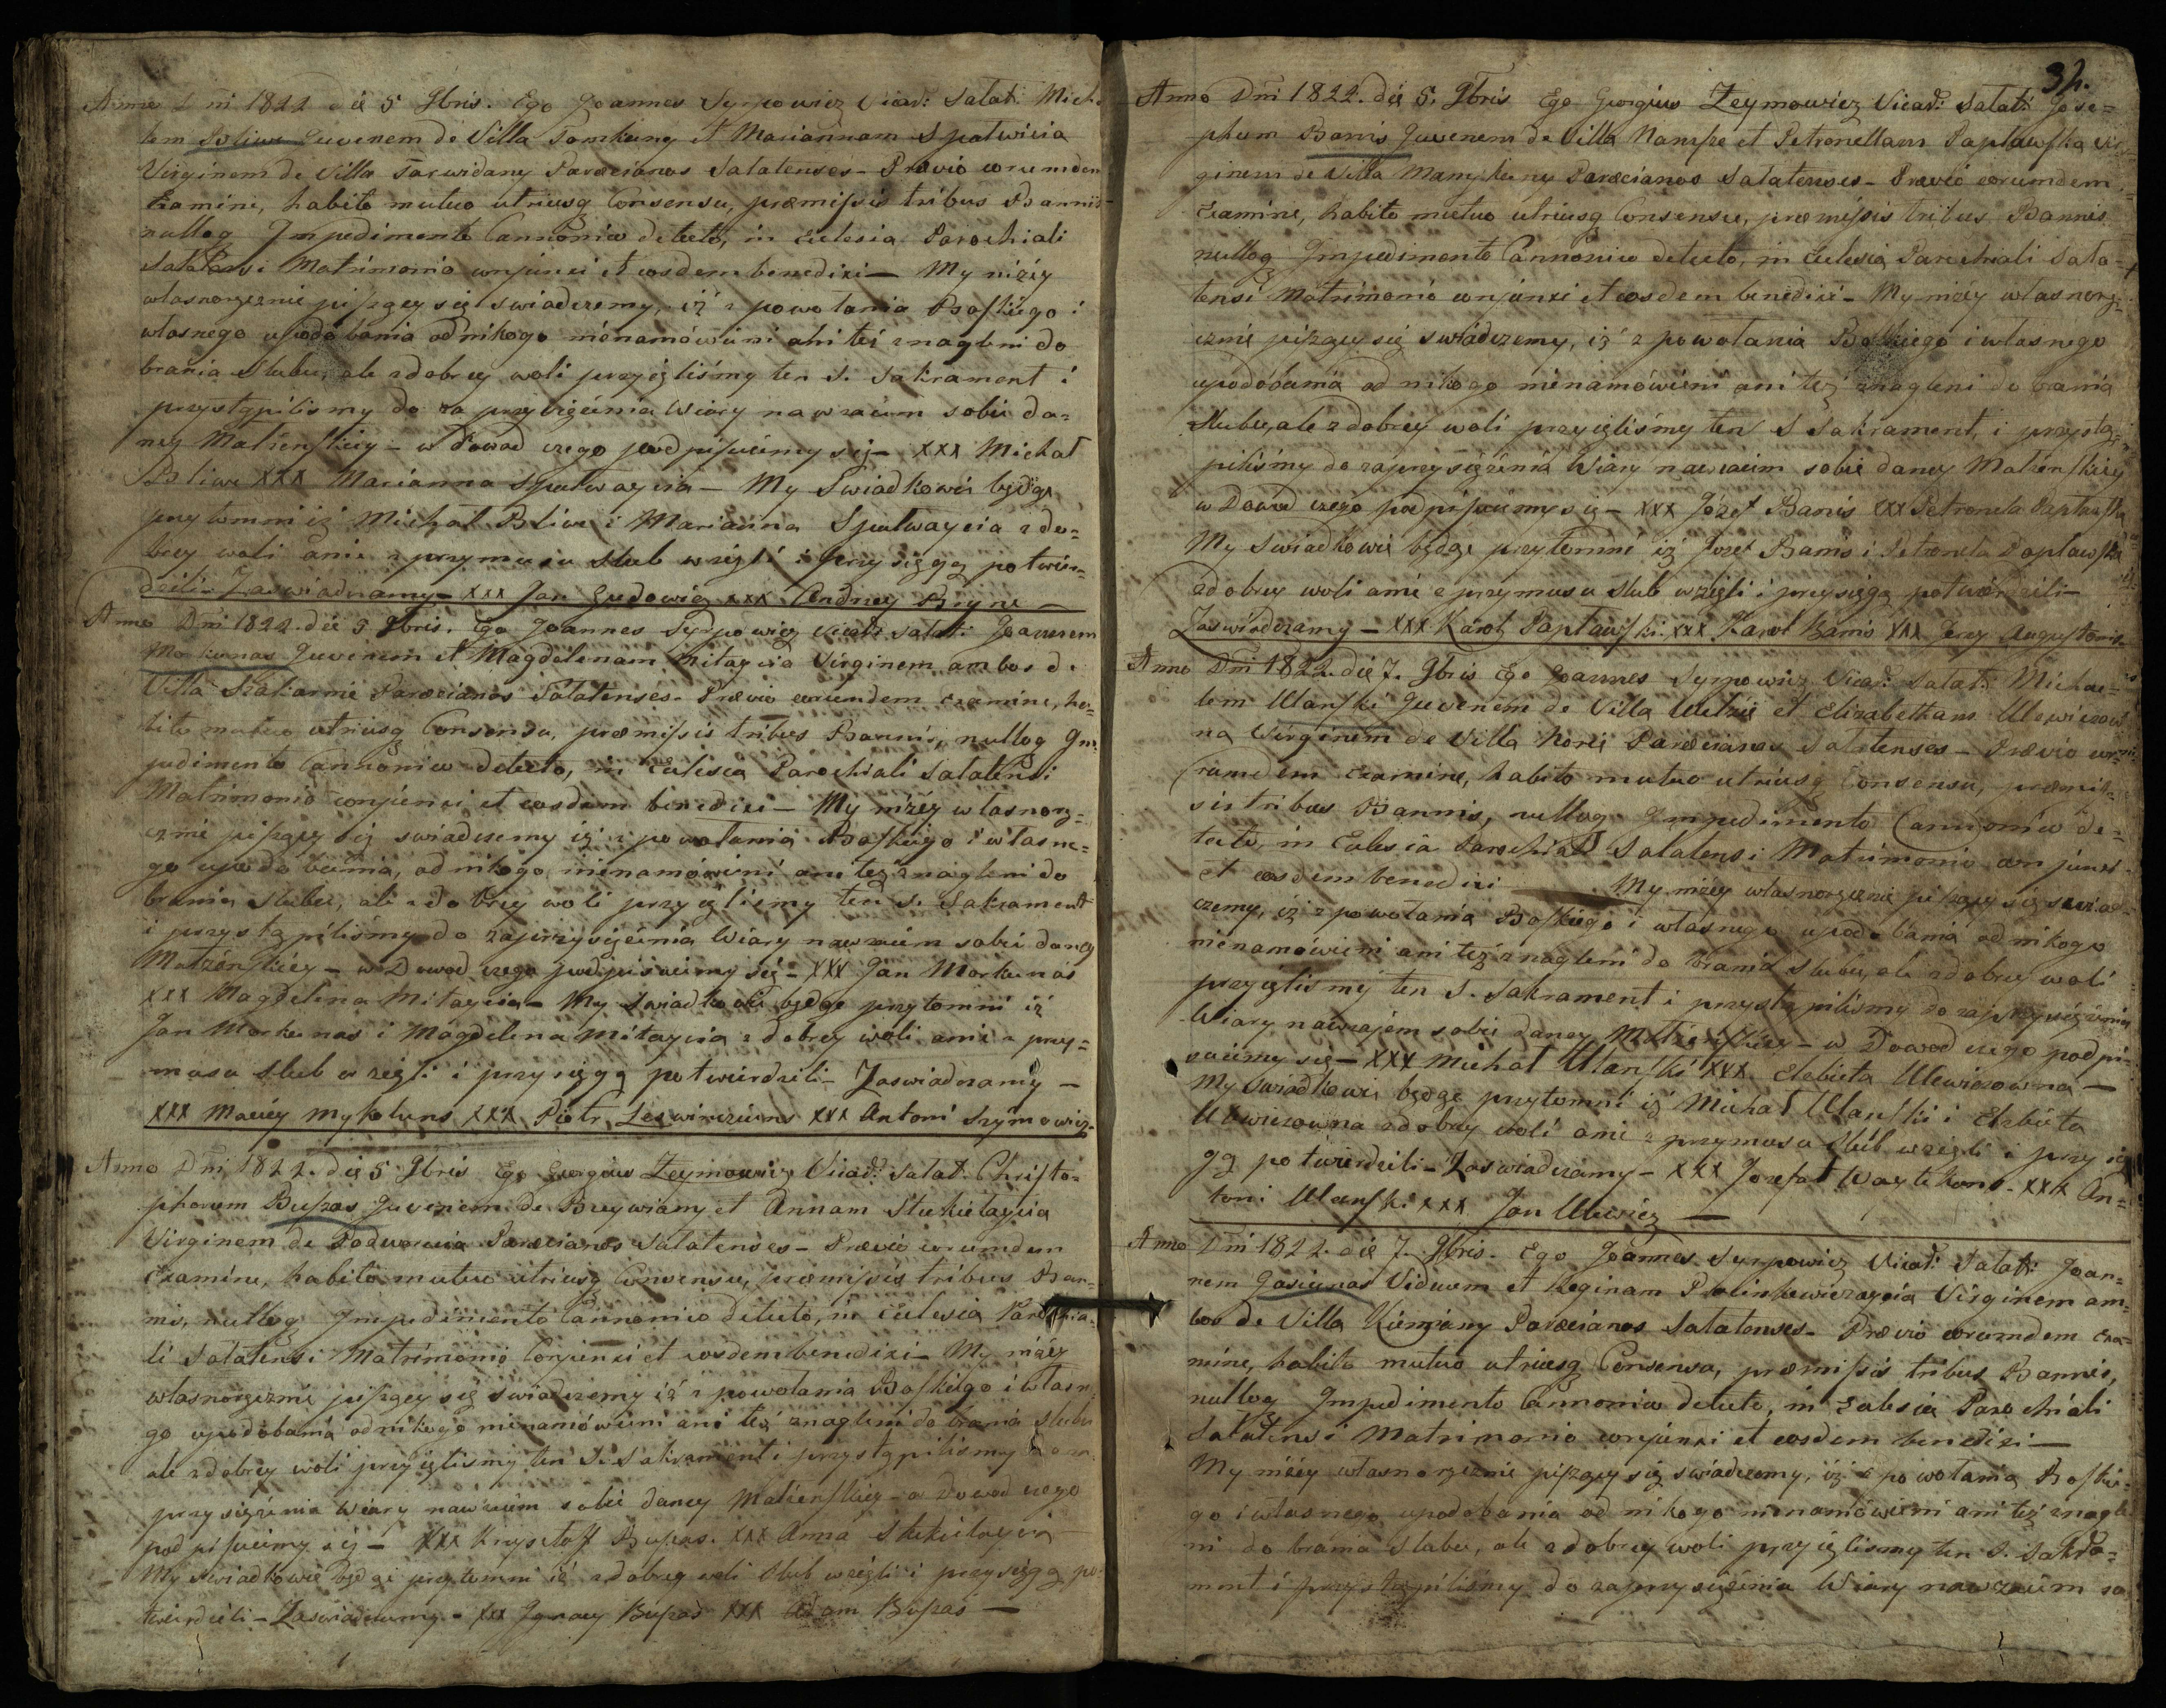 Anno Dni 1822 die 5 9bris. Ego Joannes Syrpowicz Vicar: Salat: Micha-
lem Bliwe Juvenem de Villa Pamkung et Mariannam Spatwicia
Virginem de Villa Tarwidany Paroecianos Salatenses - Prævio eorumdem
Examine, habito mutuo utriusq Consensu, præmissis tribus Bannis
nulloq Impedimento Cannonico detecto, in Eclesia Parochiali
Salatensi Matrimonio conjunxi et eosdem benedixi — My niżey
własnoręcznie piszący się swiadczemy, iż z powołania Boskiego i
własnego upodobania od nikogo nienamówieni ani też znagleni do
brania Slubu, ale z dobrey woli przyięliśmy ten S. Sakrament i
przystąpiliśmy do zaprzysiężenia Wiary nawzaiem sobie da=
ney Małżenskiey - w Dowod czego podpisuiemy się - XXX Michał
Bliwe XXX Marianna Spatwaycia — My Swiadkowie będąc
przytomni iż Michał Bliwe i Marianna Spatwaycia z do=
brey woli anie z przymusu slub wzięli i przysięgą potwier=
dzili Zaswiadczamy - XXX Jan Gudowicz XXX Andrzey Bryne —
Anno Dni 1822. die 5 9bris. Ego Joannes Syrpowicz Vicar: Salat: Joannem
Morkunas Juvenem et Magdelenam Mitaycia Virginem ambos de
Villa Szakarnie Paroecianos Salatenses. Prævio eorumdem examine, ha=
bito mutuo utriusq Consensu, præmissis tribus Bannis, nulloq Im=
pedimento Cannonico detecto, in Eclesia Parochiali Salatensi
Matrimonio conjunxi et eosdem benedixi — My niżey własnorę=
cznie piszący się swiadczemy iż z powołania Boskiego i własne=
go upodobania, od nikogo nienamówieni ani też znagleni do
brania slubu, ale z dobrey woli przyięliśmy ten S. Sakrament
i przystąpiliśmy do zaprzysiężenia Wiary nawzaiem sobie daney
Małżenskiey - w Dowod czego podpisuiemy się - XXX Jan Morkunas
XXX Magdelena Mitaycia - My swiadkowie będąc przytomni iż
Jan Morkunas i Magdelena Mitaycia z dobrey woli anie z przy=
musu slub wzięli i przysięgą potwierdzili - Zaswiadczamy —
XXX Maciey Mykoluns XXX Piotr Leswinczuns XXX Antoni Szymowicz
Anno Dni 1822. die 5 9bris Ego Georgius Zeymowicz Vicar: Salat: Christo=
phorum Buszas Juvenem de Breywiany et Annam Stukietaycia
Virginem de Paroecianos Salatenses - Prævio eorumdem
Examine, habito mutuo utriusq Consensu, præmissis tribus Ban=
nis, nulloq Impedimento Cannonico detecto, in Eclesia Parochia=
li Salatensi Matrimonio Conjunxi et eosdem benedixi - My niżey
własnoręcznie piszący się swiadczemy iż z powołania Boskiego i własne=
go upodobania od nikogo nienamówieni ani też znagleni do brania slubu
ale z dobrey woli przyięliśmy ten S. Sakrament i przystąpiliśmy do za
przysiężenia Wiary nawzaiem sobie daney Małżenskiey - w Dowod czego
podpisuiemy się - XXX Krysztoff Buszas. XXX Anna Stukietaycia
My swiadkowie będąc przytomni iż z dobrey woli slub wzięli i przysięgą po
twierdzili - Zaswiadczamy - XXX Ignacy Buszas XXX Adam Buszas —
32.
Anno Dni 1822. die 5. 9bris Ego Georgius Zeymowicz Vicar: Salat: Jose=
phum Banis Juvenem de Villa Nampe et Petronellam Paplawska Vir=
ginem de Villa Manykuny Paroecianos Salatenses - Prævio eorumdem
Examine, habito mutuo utriusq Consensu, præmissis tribus Bannis
nulloq Impedimento Cannonico detecto, in Eclesia Parochiali Sala=
tensi Matrimonio conjunxi et eosdem benedixi - My niżey własnorę=
cznie piszący się swiadczemy, iż z powołania Boskiego i własnego
upodobania od nikogo nienamówieni ani też znagleni do brania
slubu, ale z dobrey woli przyięliśmy ten S Sakrament, i przystą=
piliśmy do zaprzysiężenia Wiary nawzaiem sobie daney Małżenskiey
w Dowod czego podpisuiemy się - XXX Józef Banis XXX Petronela Paplawska
My swiadkowie będąc przytomni iż Jozef Banis i Petronela Paplawska
z dobrey woli anie z przymusu slub wzięli i przysięgą potwierdzili -
Zaswiadczamy - XXX Karol Paplawski. XXX Karol Banis XXX Jerzy Augustonis
Anno Dni 1822. die 7. 9bris Ego Joannes Syrpowicz Vicar: Salat: Michae=
lem Ulanski Juvenem de Villa et Elizabetham Ulewiczow
na Virginem de Villa Norie Paroecianos Salatenses - Prævio eo=
rumdem examine, habito mutuo utriusq Consensu, præmis=
sis tribus Bannis, nulloq Impedimento Cannonico de=
tecto, in Eclesia Parochiali Salatensi Matrimonio conjunxi
et eosdem benedixi — My niżey własnoręcznie piszący się swiad=
czemy, iż z powołania Boskiego i własnego upodobania od nikogo
nienamówieni ani też znagleni do brania slubu, ale z dobrey woli
przyięliśmy ten S. Sakrament i przystąpiliśmy do zaprzysiężenia
Wiary nawzajem sobie daney Małżenskiey - w Dowod czego podpi=
suiemy się - XXX Michał Ulanski XXX Elzbieta Ulewiczowna —
My swiadkowie będąc przytomni iż Michał Ulanski i Elzbieta
Ulewiczowna z dobrey woli anie z przymusu slub wzięli i przysię
gą potwierdzili - Zaswiadczamy - XXX Jozefat Waytkons. XXX An=
toni Ulanski XXX Jan Ulewicz —
Anno Dni 1822. die 7. 9bris. Ego Joannes Syrpowicz Vicar: Salat: Joan=
nem Gasiunas Viduum et Reginam Polinkewiczaycia Virginem am=
bos de Villa Kiemiany Paroecianos Salatenses - Prævio eorumdem exa=
mine, habito mutuo utriusq Consensu, præmissis tribus Bannis,
nulloq Impedimento Cannonico detecto, in Eclesia Parochiali
Salatensi Matrimonio conjunxi et eosdem benedixi —
My niżey własnoręcznie piszący się swiadczemy, iż z powołania Boskie=
go i własnego upodobania od nikogo nienamówieni ani też znagle
ni do brania slubu, ale z dobrey woli przyięliśmy ten S. Sakra=
ment i przystąpiliśmy do zaprzysiężenia Wiary nawzaiem so